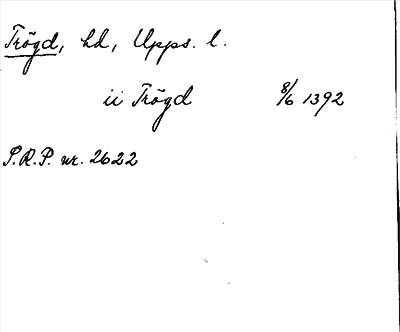 Trögd, hd, Upps. l.
ii Trögd 8/6 1392
S.R.P. nr. 2622